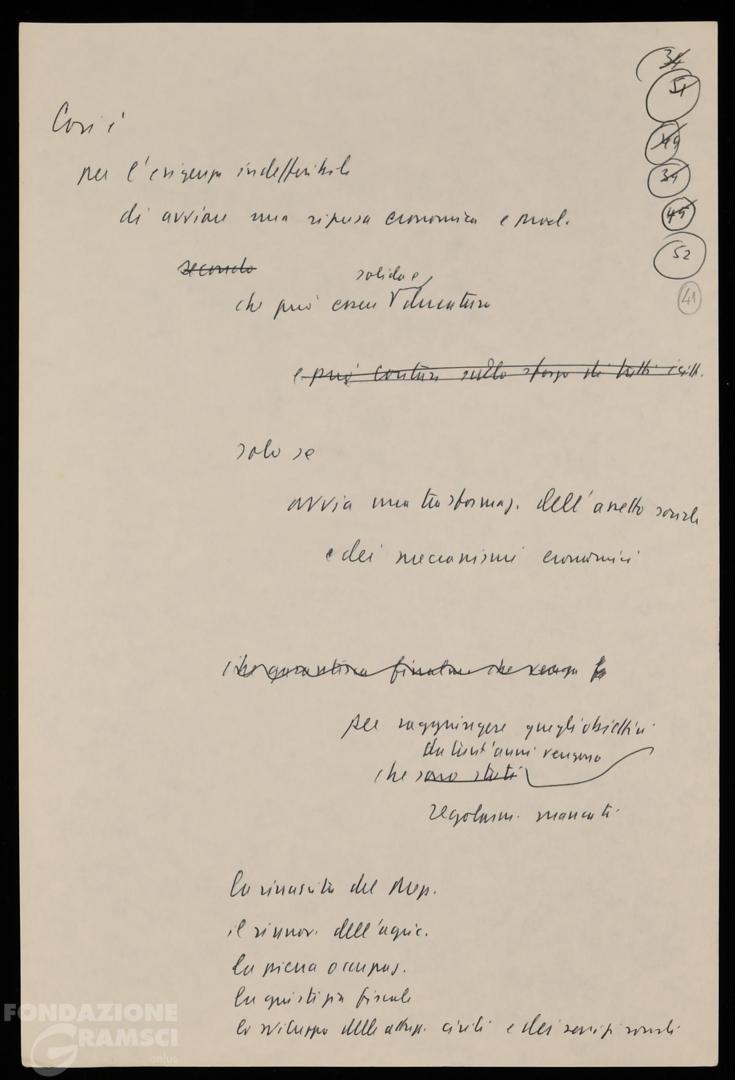 34
51
49
39
45
52
41
Così è
per l'esigenza indefferibile
di avviare una ripresa economica e prod.
secondo
solida e
che può essere duratura
e può contare sullo sforzo di tutti i citt.
solo se
avvia una trasformaz. dell'assetto sociale
e dei meccanismi economici
che garantisca finalm. che venga
per raggiungere quegli obiettivi
da tant'anni vengono
che sono stati
regolarm. mancati
la rinascita del Mezz.
il rinnov. dell'agric.
la piena occupaz.
la giustizia fiscale
lo sviluppo delle attrezz. civili e dei servizi sociali
FONDAZIONE
GRAMSCI
onlus